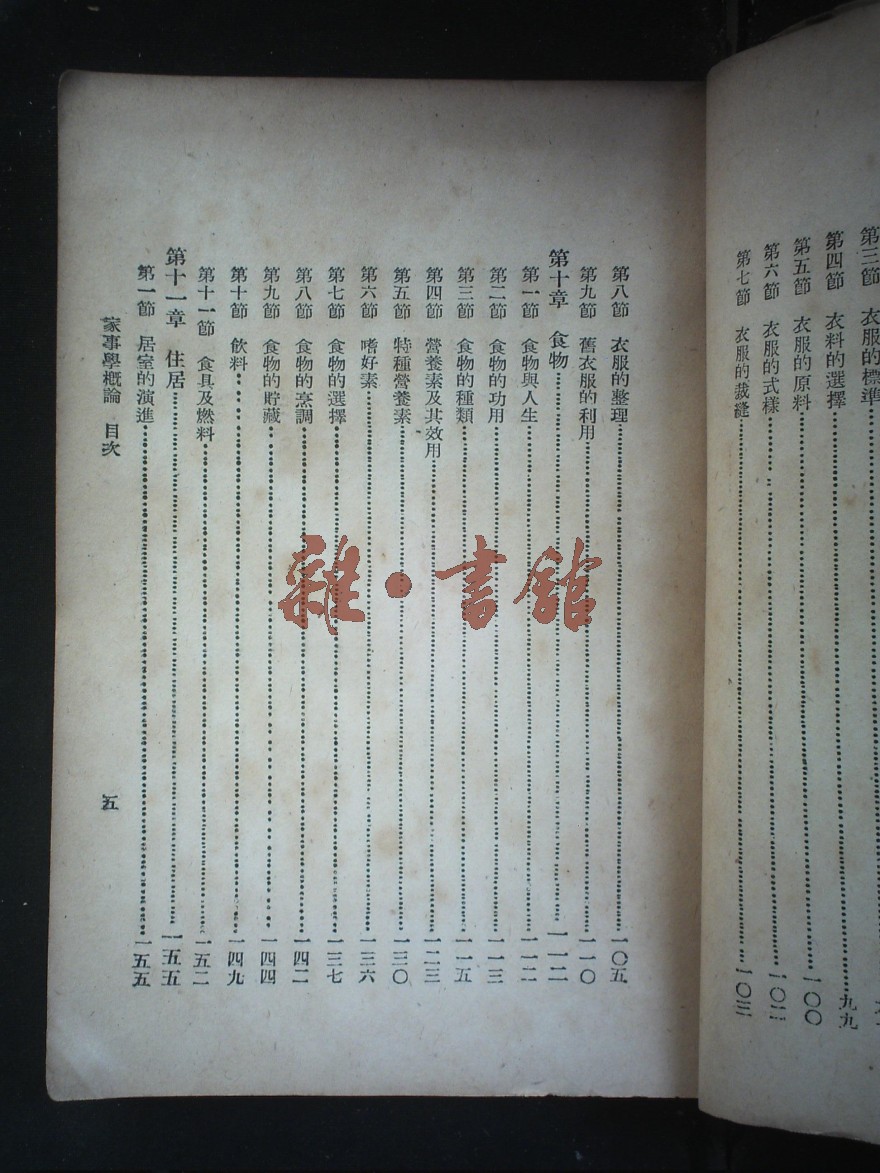 第三節 衣服的標準
第四節 衣料的選擇……九九
第五節 衣服的原料……一〇〇
第六節 衣服的式樣……一〇二
第七節 衣服的裁縫……一〇三
第八節 衣服的整理……一〇五
第九節 舊衣服的利用……一一〇
第十章 食物……一一二
第一節 食物與人生……一一二
第二節 食物的功用……一一三
第三節 食物的種類……一一五
第四節 營養素及其效用……一二三
第五節 特種營養素……一三〇
第六節 嗜好素……一三六
第七節 食物的選擇……一三七
第八節 食物的烹調……一四二
第九節 食物的貯藏……一四四
第十節 飲料……一四九
第十一節 食具及燃料……一五二
第十一章 住居……一五五
第一節 居室的演進……一五五
家事學概論 目次 五
雜·書館